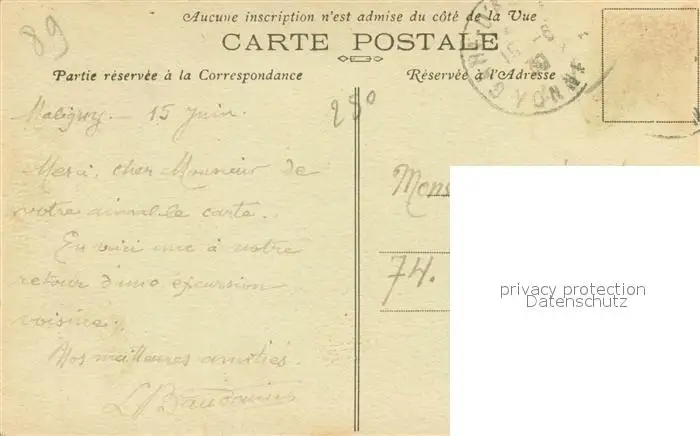 89
Aucune inscription n'est admise du côté de la Vue
CARTE POSTALE
Partie réservée à la Correspondance
Réservée à l'Adresse
280
Maligny 15 Juin.
Merci, cher Monsieur de
votre aimable carte.
En voici une à notre
retour d'une excursion
voisine.
Nos meilleures amitiés.
Mons
74.
privacy protection
Datenschutz